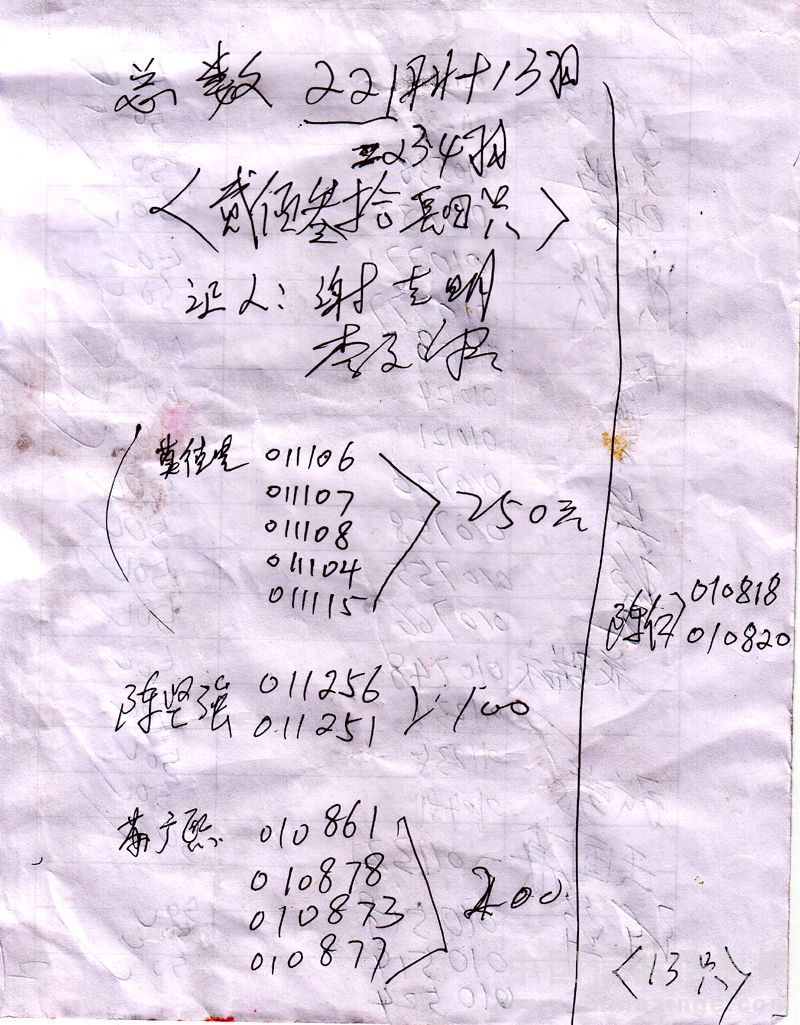 总数 221羽+13羽
=234羽
〈贰佰叁拾肆只〉
证人: 谢志明
011106
011107
011108
011104
011115
250元
陈坚强 011256
011251
100
010861
010878
010873
010877
200
陈仁 010818
010820
〈13只〉